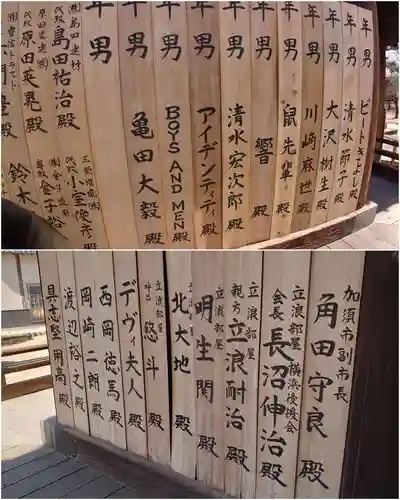 年男 ビートきよし 殿
年男 清水節子 殿
年男 大沢樹生 殿
年男 川崎麻世 殿
年男 鼠先輩 殿
年男 響 殿
年男 清水宏次郎 殿
年男 アイデンティティ 殿
年男 BOYS AND MEN 殿
年男 亀田大毅 殿
年男
代表 小室俊彦 殿
島田祐治 殿
金子裕
代表 原田英晃 殿
鈴木
加須市副市長
角田守良 殿
立浪部屋横浜後援会
会長 長沼伸治 殿
立浪部屋
親方 立浪耐治 殿
立浪部屋
明生関 殿
立浪部屋
北大地 殿
立浪部屋
悠斗 殿
デヴィ夫人 殿
西岡徳馬 殿
岡崎二朗 殿
渡辺裕之 殿
具志堅用高 殿